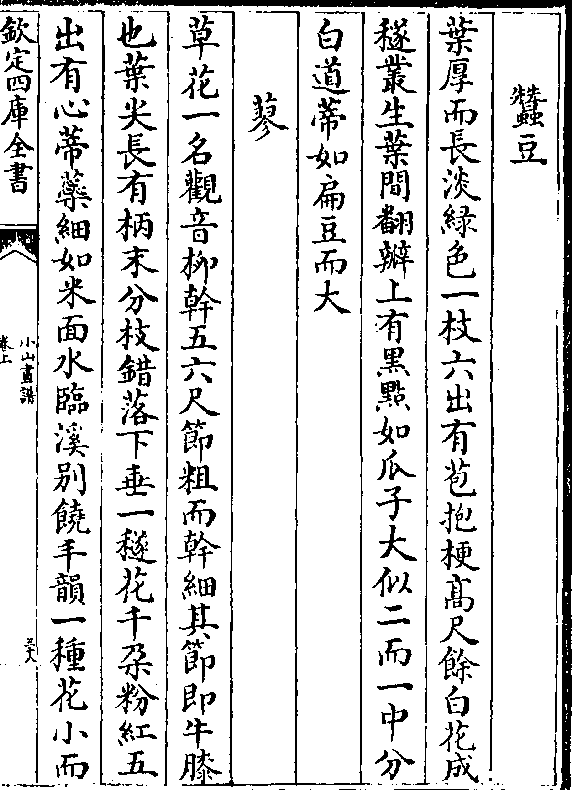 蠶豆
葉厚而長淡綠色一枝六出有苞抱梗髙尺餘白花成
穟叢生葉間翻瓣上有黒點如瓜子大似二而一中分
白道蒂如扁豆而大
蓼
草花一名觀音柳幹五六尺節粗而幹細其節即牛膝
也葉尖長有柄末分枝錯落下垂一穟花千朶粉紅五
出有心蒂藥細如米面水臨溪別饒丰韻一種花小而
欽定四庫全書
小山畫譜
卷上